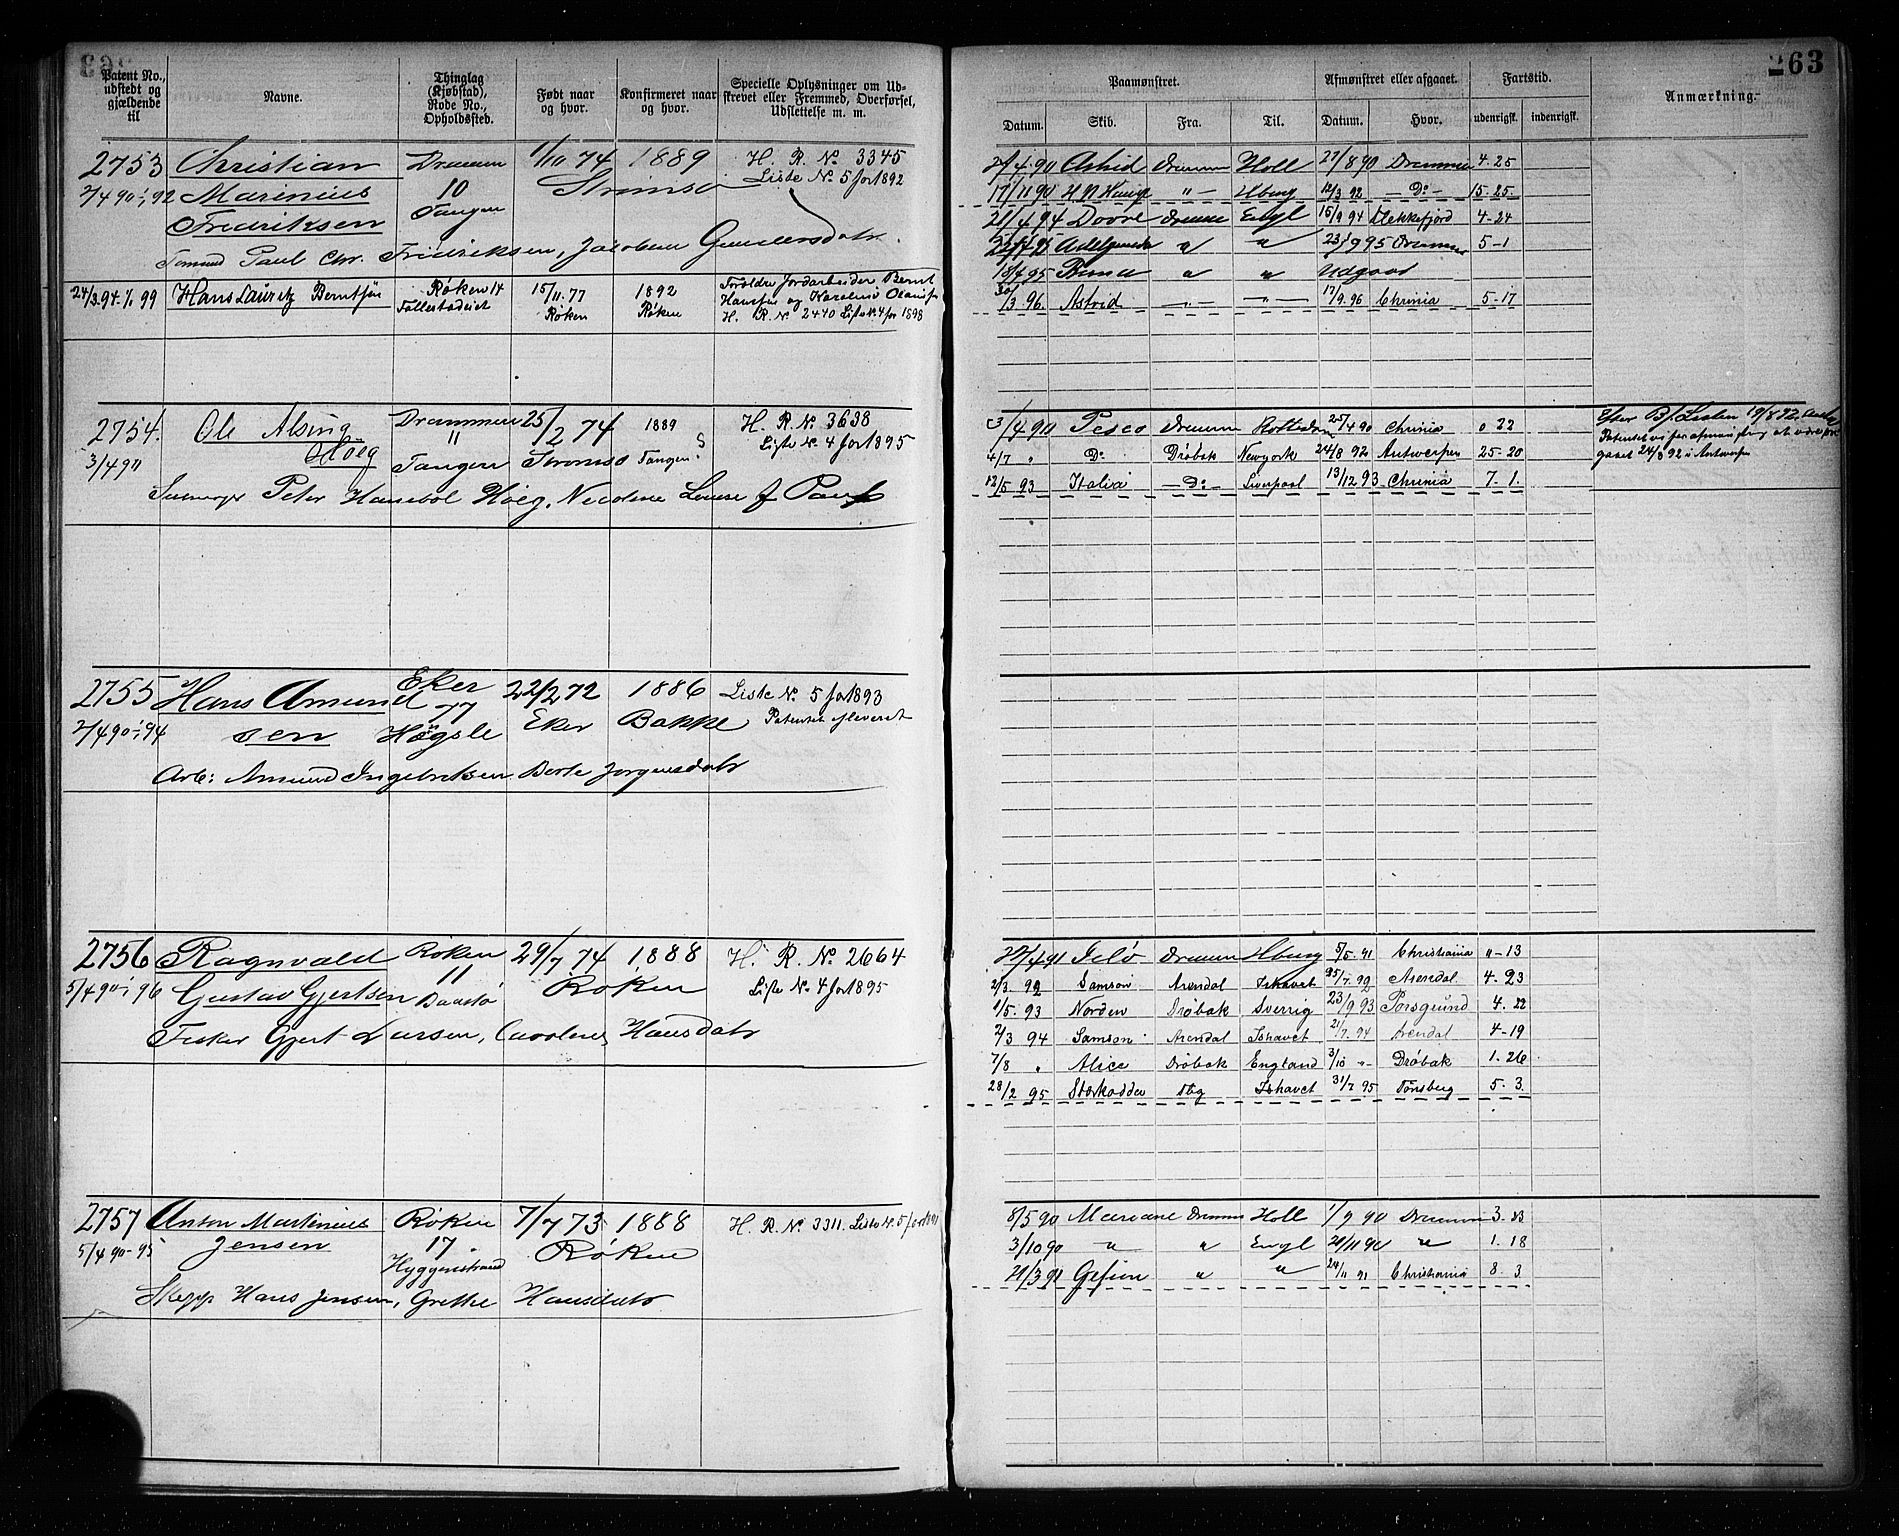 263
Patent No., udstedt og gjældende til
Navne.
Thinglag (Kjøbstad), Rode No., Opholdssted.
Født naar og hvor.
Konfirmeret naar og hvor.
Specielle Oplysninger om Udskrevet eller Fremmed, Overførsel, Udslettelse m. m.
Paamønstret.
Afmønstret eller afgaaet.
Fartstid.
Anmærkning.
Datum. Skib. Fra. Til. Datum. Hvor. udenrigsk. indenrigsk.
2753 Christian Drammen 1/10 74 1889 H. R. No 3345
2/4 90-1/1 92 Marinius 10 Strømsø Liste No 5 for 1892
Fredriksen Tangen
Paul Chr. Fredriksen, Jacobine Gundersdatr.
24/3 94-1/1 99 Hans Lauritz Berntsen Røken 14 15/11 77 1892 Forældre Jordarbeider Bernt
Røken Røken Hansen og Karoline Olausd
H. R. No 2440 Liste No 4 for 1898
4.90 Astrid Drammen Holl 27/8 90 Drammen 4-25
17/11 90 " Hburg 12/3 92 Do 15-25
21/4 94 Dovre Drammen Engl 15/9 94 Flekkefjord 4-24
" " 23/9 95 Drammen 5-1
18/4 95 " " Udgaat
30/3 96. Astrid " " 17/9 96 Chrinia 5-17
2754. Ole Alsing Drammen 25/2 74 1889 H. R. No 3638
3/4 90 Høeg 11 Strømsø Tangen Liste No 4 for 1895
Tangen
Peter Hanebol Høeg, Nicoline Louise f Paus
3/4 90 Pesco Drammen Rotterdam 25/4 90 Chrinia 0 22
4/7 " Do Drøbak Newyork 24/8 92 Antwerpen 25-20
12/5 93 Italia Do Liverpool 13/12 93 Chrinia 7. 1.
gaaet 24/8 92 i Antwerpen
2755 Hans Amund Eker 22/2 72 1886 Liste No 5 for 1893
2/4 90-1/1 94 sen 77 Eker Bakke Patentet afleveret
Høgsle
Arb: Amund Ingebretsen Berte Jørgensdatr
2756 Ragnvald Røken 29/7 74 1888 H. R. No 2664
5/4 90-1/1 96 Gustav Gjertsen 11 Røken Liste No 4 for 1895
Baastø
Fisker Gjert Larsen, Caroline Hansdatr
4 91 Jelø Drammen Hburg 5/5 91 Christiania "-13
2/3 92 Samson Arendal Ishavet 25/7. 92 Arendal 4-23
1/5. 93 Norden Drøbak Sverrig 23/9 93 Porsgrund 4. 22
2/3 94 Samson Arendal Ishavet 21/7. 94 Arendal 4-19
7/8 " Alice Drøbak England 3/10 " Drøbak 1. 26
28/2 95 Stærkodder Tbg Ishavet 31/7 95 Tønsberg 5. 3.
2757 Anton Martinius Røken 7/7 73 1888 H. R. No 3311. Liste No 5 for 1891
5/4 90-95 Jensen 17 Røken
Hyggenstrand
Skipp Hans Jensen, Grethe Hansdatr
8/5 90 Mariane Drammen Holl 1/9 90 Drammen 3-23
3/10 90 " " Engl 21/11 90 " 1. 18
21/3 91 Gefion " " 24/11 91 Christiania 8. 3